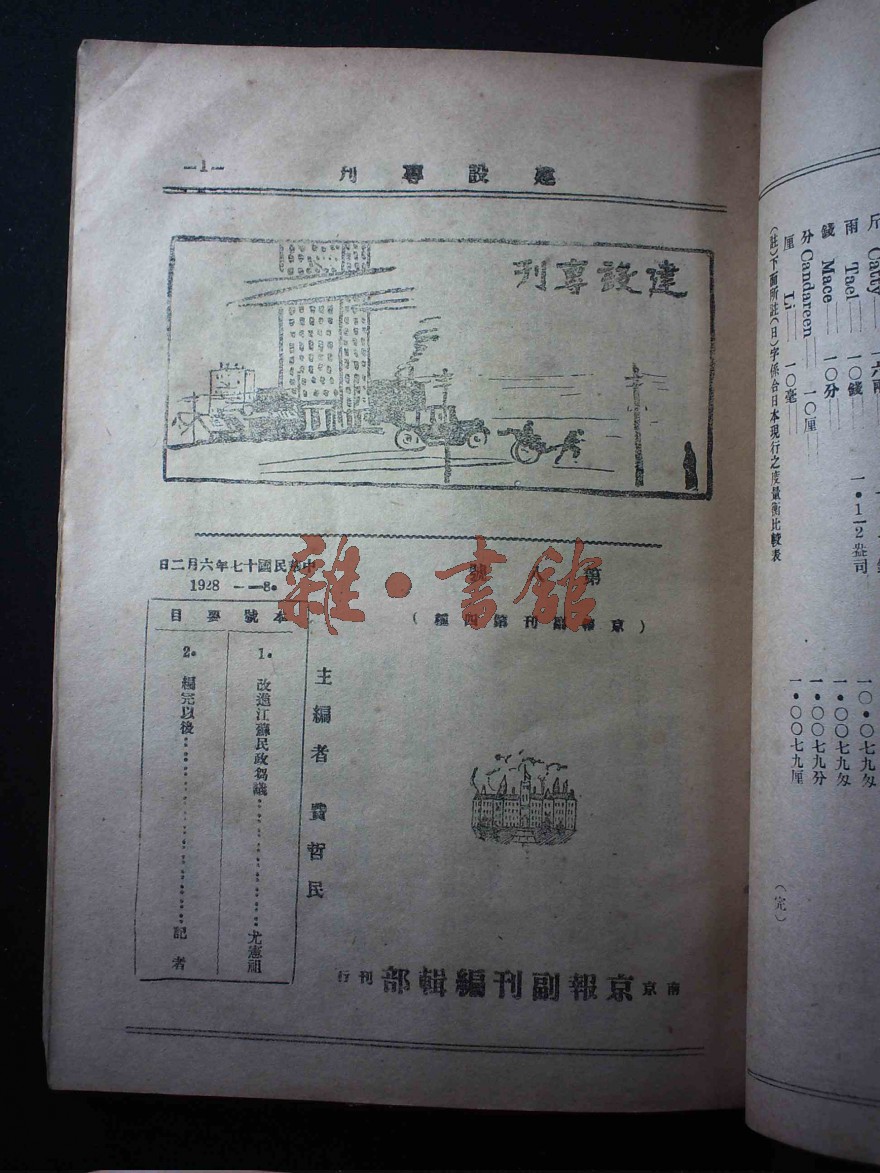 建設專刊
—1—
建設專刊
第八號
中華民國十七年六月二日
(京報副刊第四種)
本號要目
1. 改進江蘇民政芻議 尤憲祖
2. 編完以後 記者
主編者 費哲民
南京京報副刊編輯部刊行
雜·書館
斤 Catty
兩 Tael 一〇錢
錢 Mace 一〇分
分 Candareen 一〇厘
厘 Li 一〇毫
(註)下面所註(日)字係合日本現行之度量衡比較表
一•1—2盎司
一〇•〇七九匁
一•〇〇七九匁
一•〇〇七九分
一•〇〇七九厘
(完)